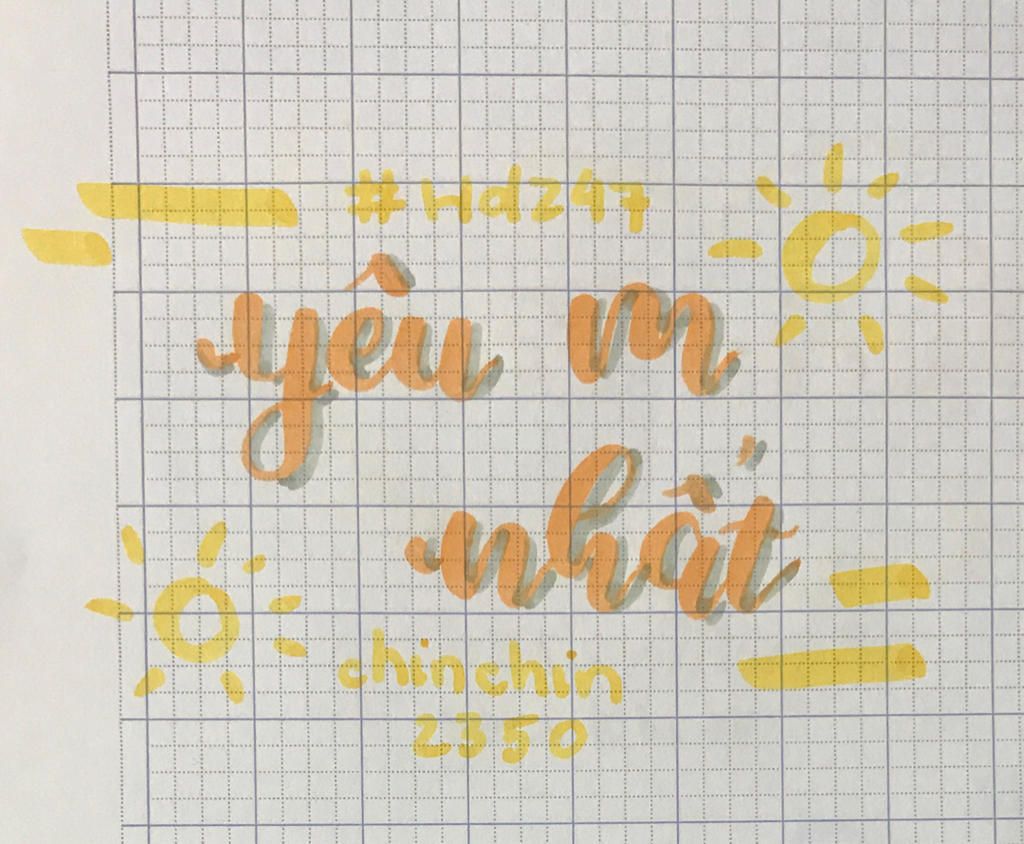 #Hd247
yêu m
nhất
chinchin
2350